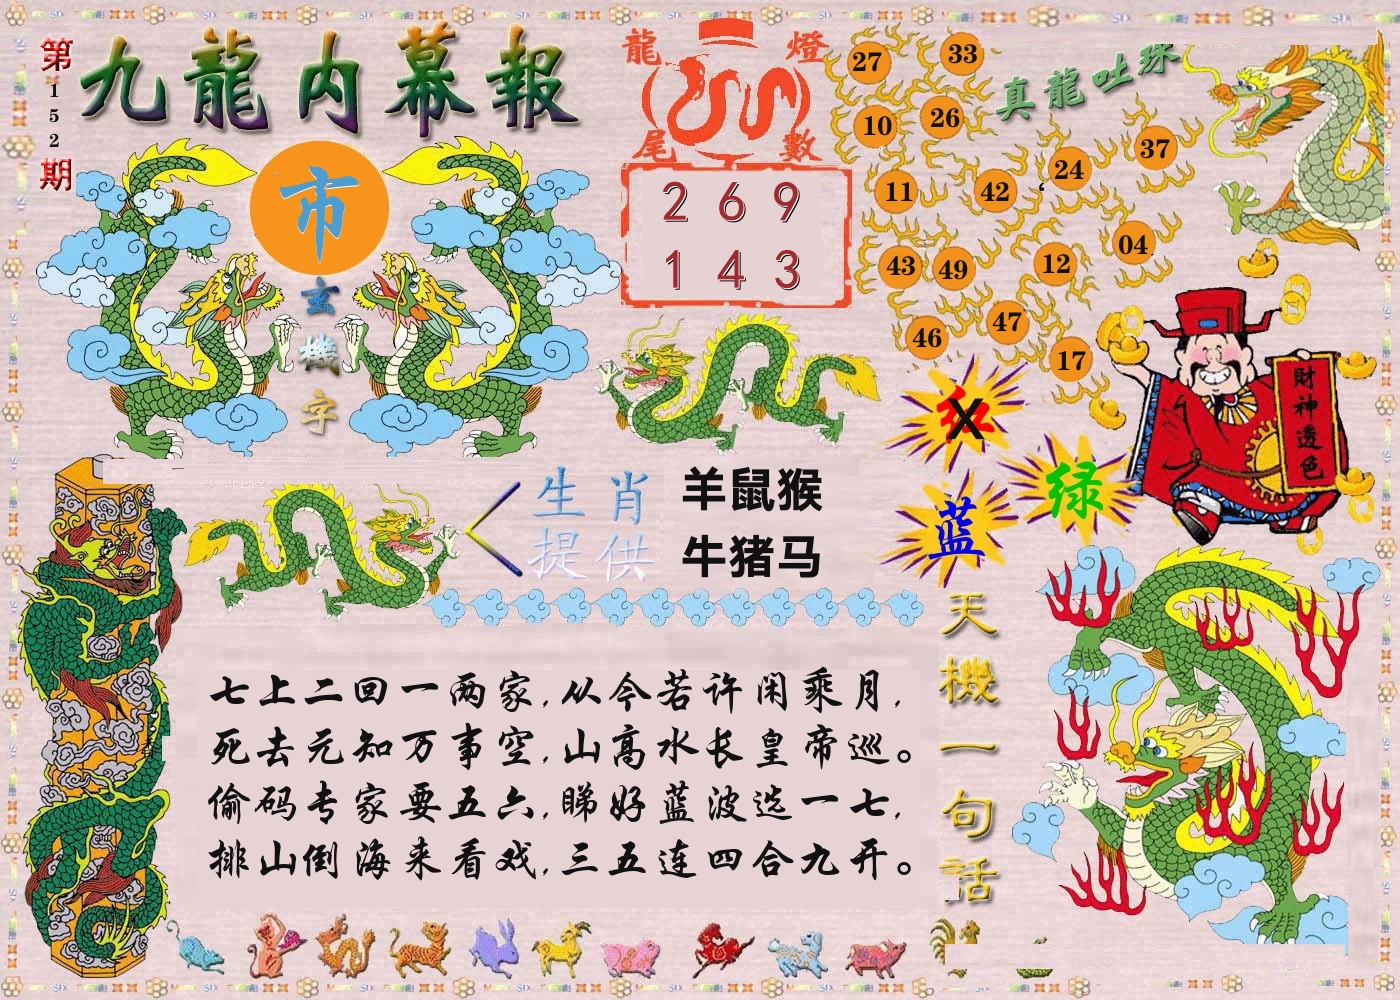 第152期
九龍内幕報
市
玄機字
龍燈尾數
2 6 9
1 4 3
27
33
10
26
11
42
24
37
43
49
12
04
46
47
17
真龍吐珠
財神透色
红
X
绿
蓝
生肖
提供
羊鼠猴
牛猪马
天機一句話
七上二回一两家,从今若许闲乘月,
死去元知万事空,山高水长皇帝巡。
偷码专家要五六,睇好蓝波选一七,
排山倒海来看戏,三五连四合九开。